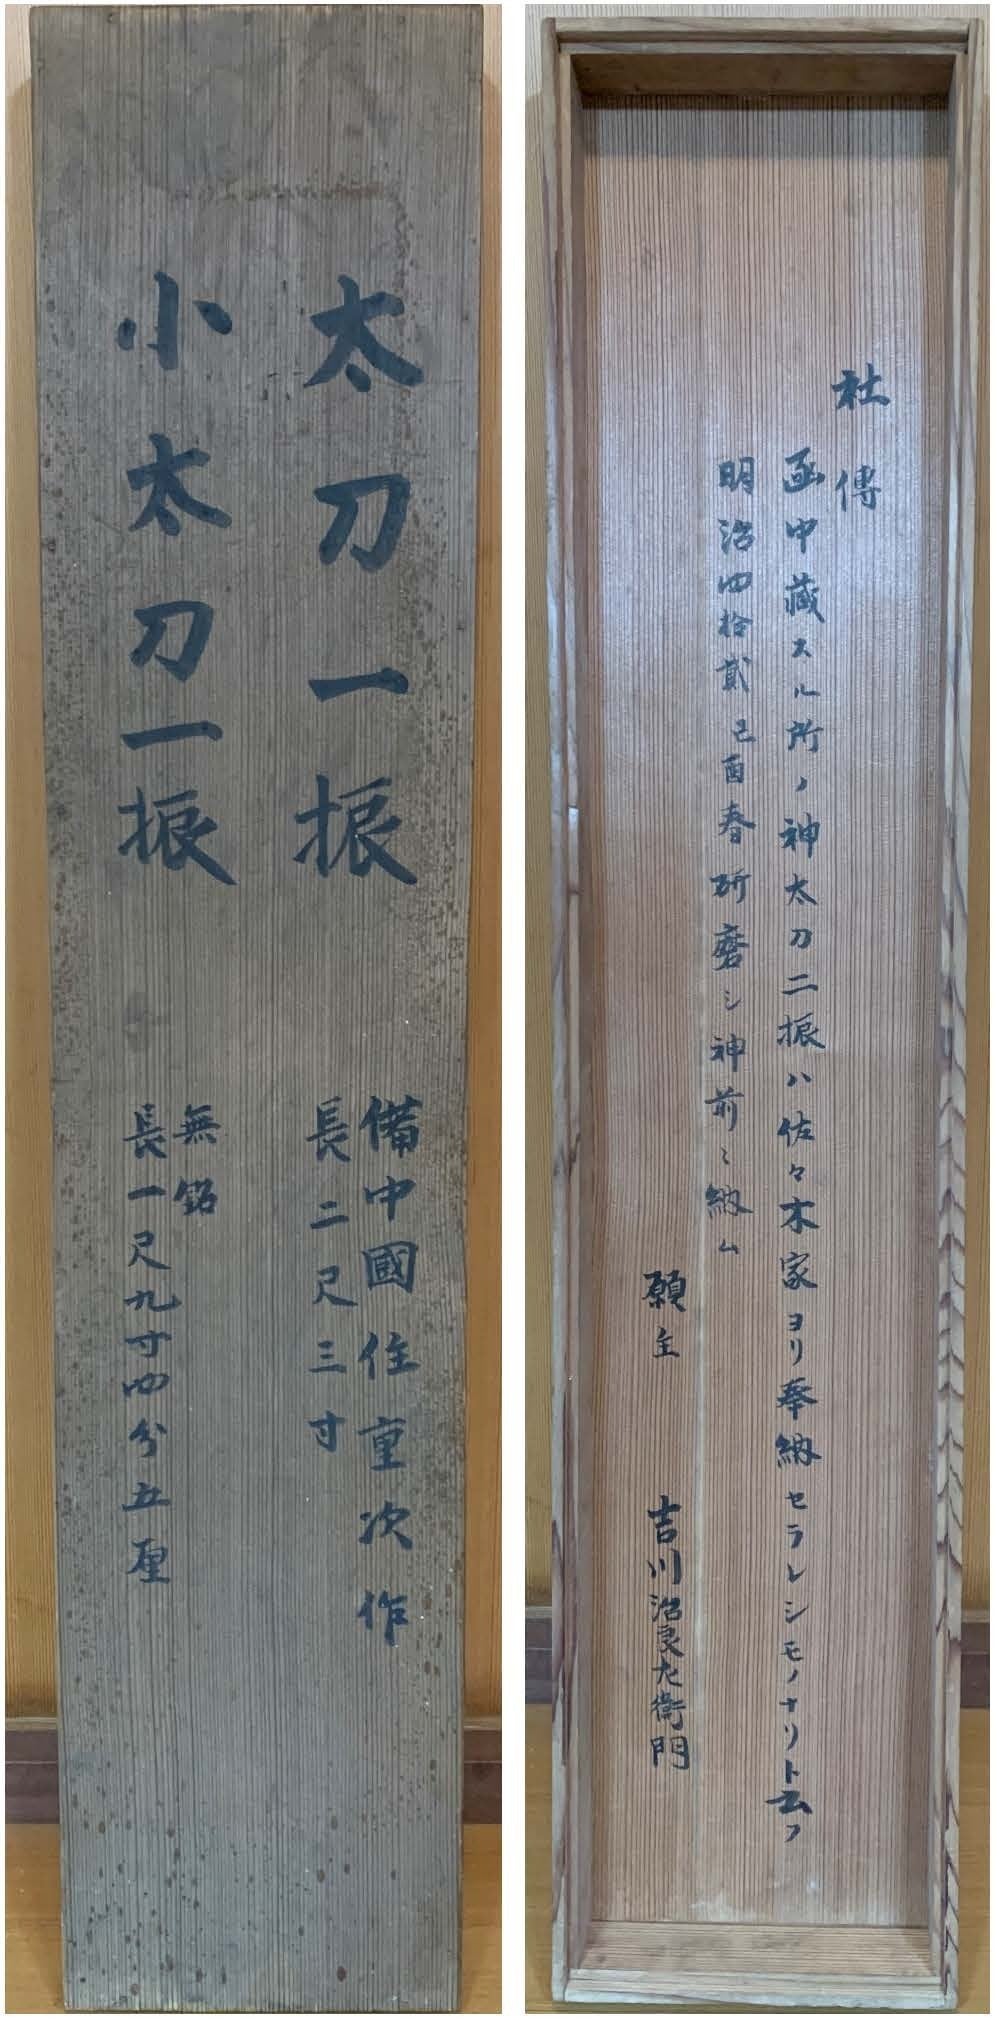 太刀一振
備中國住重次作
長二尺三寸
小太刀一振
無銘
長一尺九寸四分五厘
社傳
函中藏スル所ノ神太刀二振ハ佐々木家ヨリ奉納セラレシモノナリト云フ
明治四拾貳己酉春研磨シ神前ニ納ム
願主 吉川治良左衛門